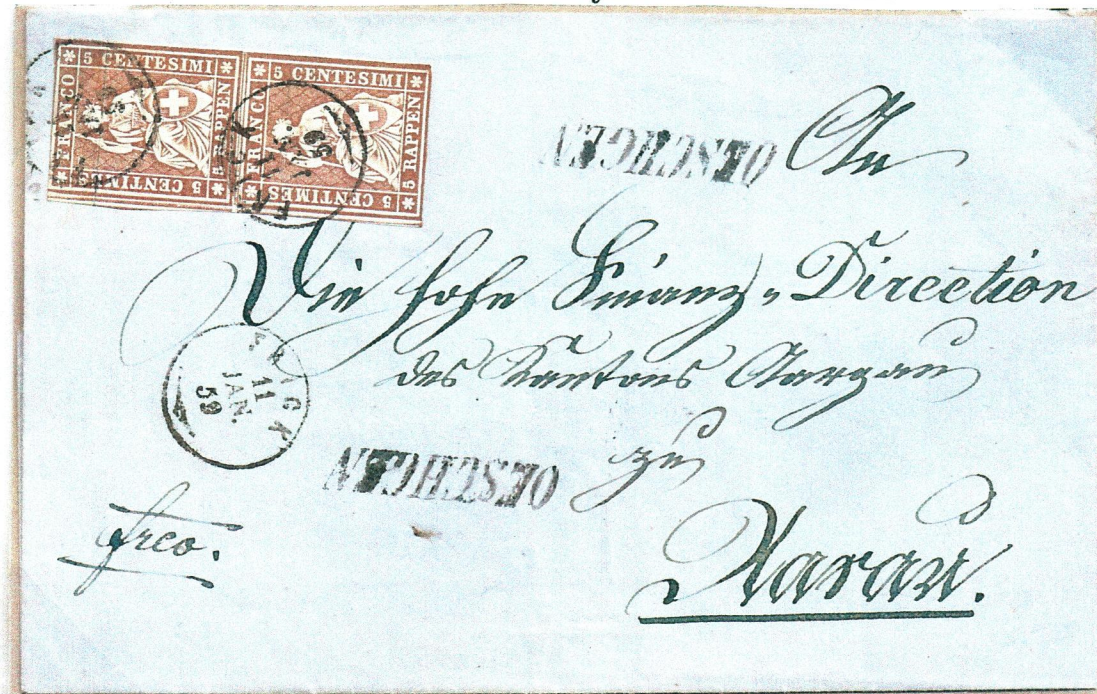 5 CENTESIMI
FRANCO
5 RAPPEN
5 CENTIMES
5 CENTESIMI
FRANCO
5 RAPPEN
5 CENTIMES
OESCHGEN
An
Die hohe Finanz-Direction
des Kantons Aargau
zu
Aarau.
FRICK
11
JAN.
59
OESCHGEN
frco.